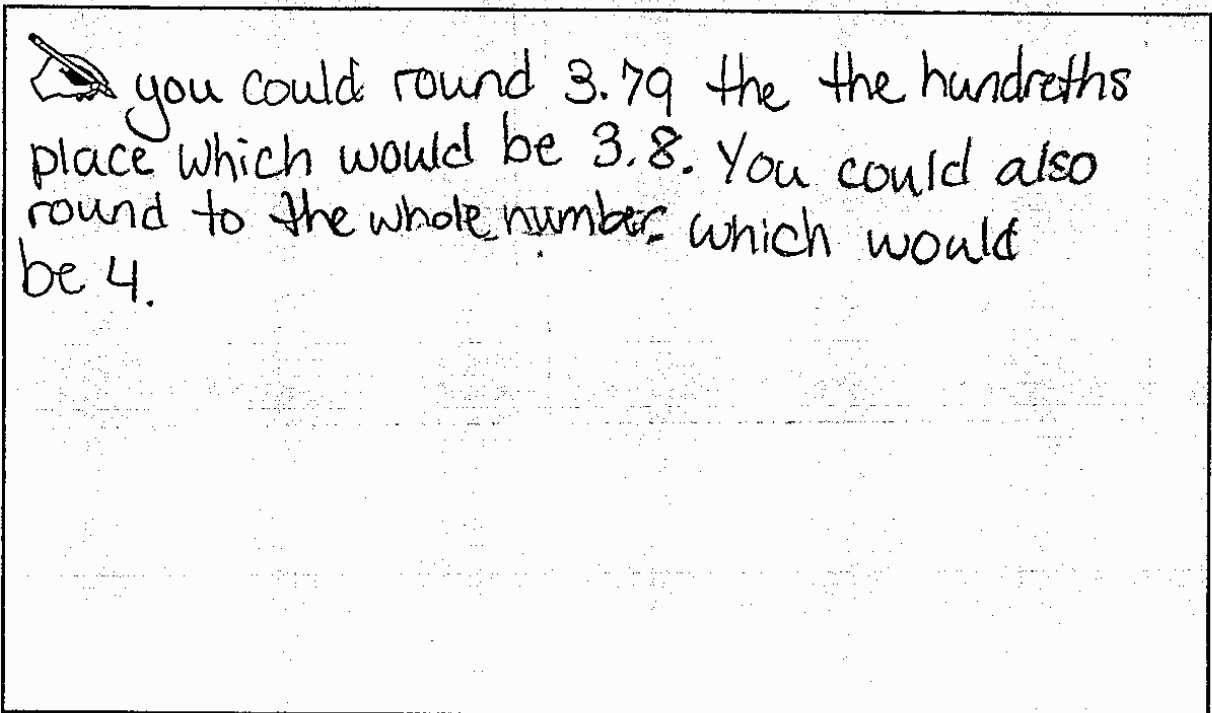 you could round 3.79 the the hundreths
place which would be 3.8. You could also
round to the whole number which would
be 4.